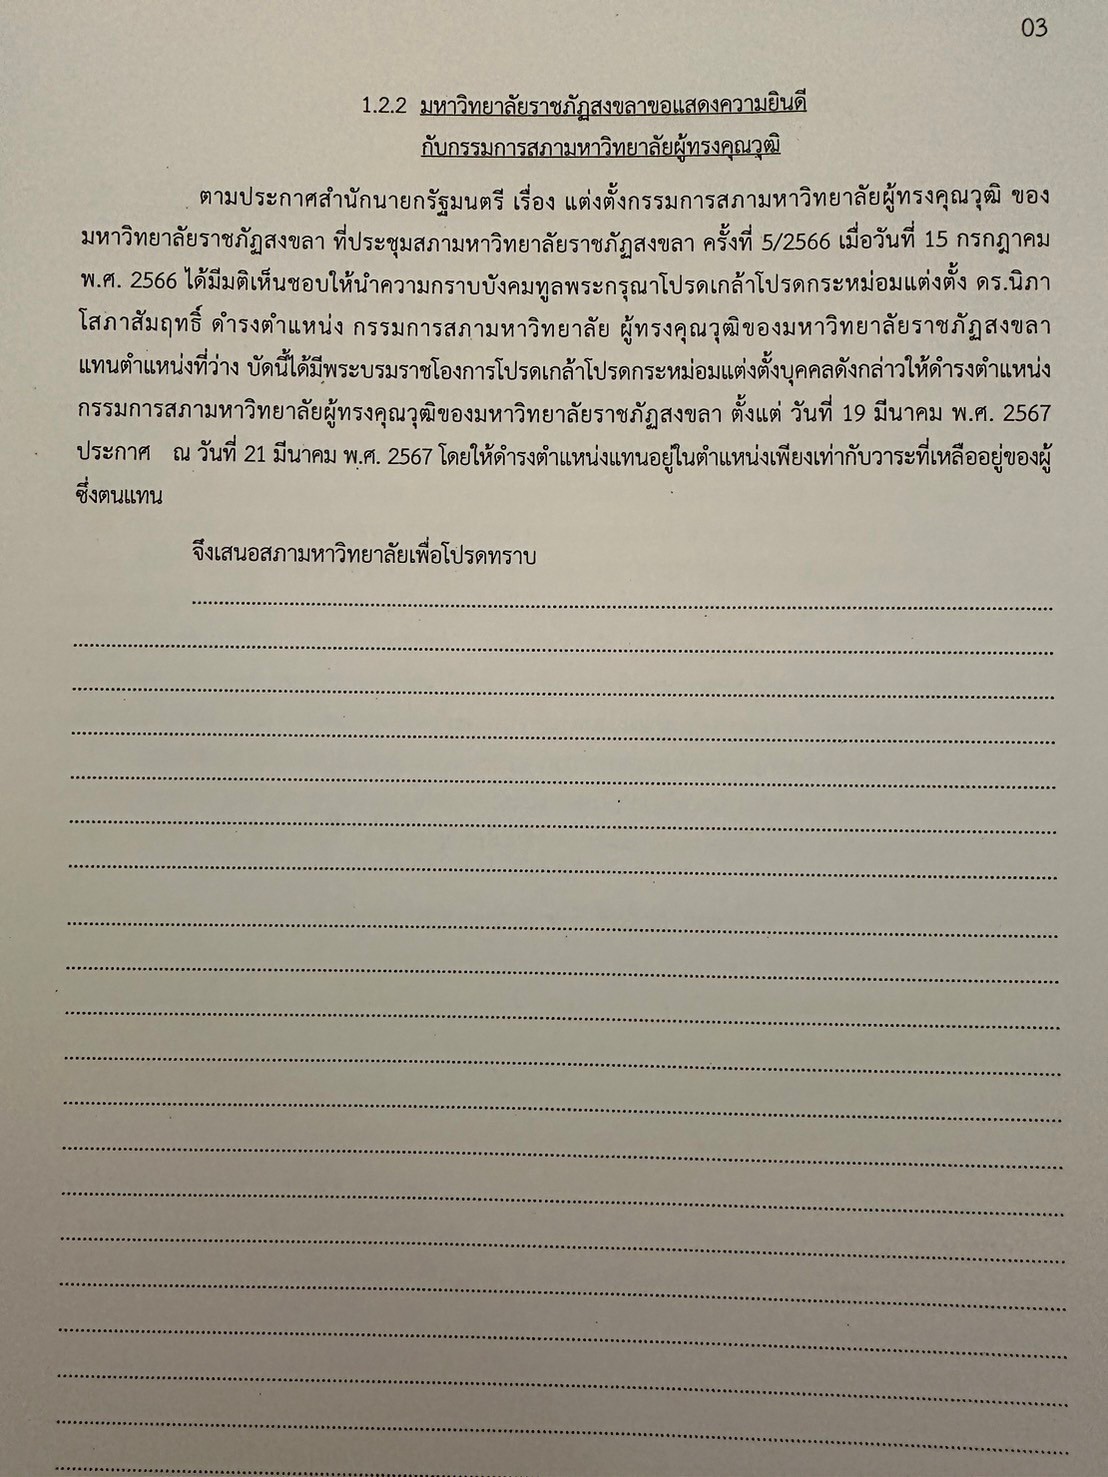 03
1.2.2 มหาวิทยาลัยราชภัฏสงขลาขอแสดงความยินดี
กับกรรมการสภามหาวิทยาลัยผู้ทรงคุณวุฒิ
ตามประกาศสำนักนายกรัฐมนตรี เรื่อง แต่งตั้งกรรมการสภามหาวิทยาลัยผู้ทรงคุณวุฒิ ของ
มหาวิทยาลัยราชภัฏสงขลา ที่ประชุมสภามหาวิทยาลัยราชภัฏสงขลา ครั้งที่ 5/2566 เมื่อวันที่ 15 กรกฎาคม
พ.ศ. 2566 ได้มีมติเห็นชอบให้นำความกราบบังคมทูลพระกรุณาโปรดเกล้าโปรดกระหม่อมแต่งตั้ง ดร.นิภา
โสภาสัมฤทธิ์ ดำรงตำแหน่ง กรรมการสภามหาวิทยาลัย ผู้ทรงคุณวุฒิของมหาวิทยาลัยราชภัฏสงขลา
แทนตำแหน่งที่ว่าง บัดนี้ได้มีพระบรมราชโองการโปรดเกล้าโปรดกระหม่อมแต่งตั้งบุคคลดังกล่าวให้ดำรงตำแหน่ง
กรรมการสภามหาวิทยาลัยผู้ทรงคุณวุฒิของมหาวิทยาลัยราชภัฏสงขลา ตั้งแต่ วันที่ 19 มีนาคม พ.ศ. 2567
ประกาศ ณ วันที่ 21 มีนาคม พ.ศ. 2567 โดยให้ดำรงตำแหน่งแทนอยู่ในตำแหน่งเพียงเท่ากับวาระที่เหลืออยู่ของผู้
ซึ่งตนแทน
จึงเสนอสภามหาวิทยาลัยเพื่อโปรดทราบ